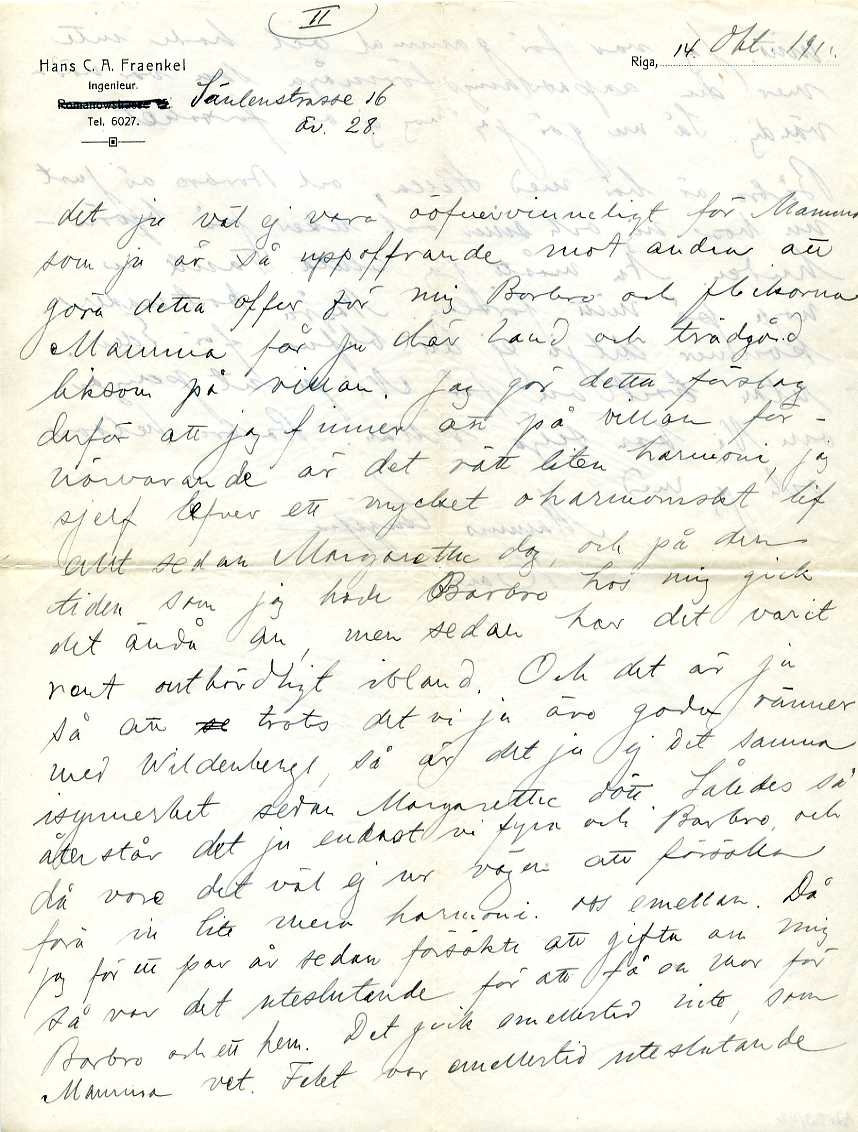 II
Hans C. A. Fraenkel
Ingenieur.
Romanowstrasse
Tel. 6027.
Säulenstrasse 16
Qv. 28.
Riga, 14. Okt. 1911.
det ju väl ej vara oöfvervinneligt för Mamma
som ju är så uppoffrande mot andra att
göra detta offer för mig Barbro och flickorna
Mamma får ju där land och trädgård
liksom på villan. Jag gör detta förslag
derför att jag finner att på villan för-
närvarande är det rätt liten harmoni, jag
sjelf lefver ett mycket oharmoniskt lif
allt sedan Margarethe dog, och på den
tiden som jag hade Barbro hos mig gick
det ändå an, men sedan har det varit
rent outhärdligt ibland. Och det är ju
så att se trots det vi ju äro goda vänner
med Wildenbergs, så är det ju ej det samma
isynnerhet sedan Margarethe dött. Således så
återstår det ju endast vi fyra och Barbro, och
då vore det väl ej ur vägen att försöka
föra in lite mera harmoni oss emellan. Då
jag för ett par år sedan försökte att gifta om mig
så var det uteslutande för att få en mor för
Barbro och ett hem. Det gick emellertid inte, som
Mamma vet. Felet var emellertid uteslutande